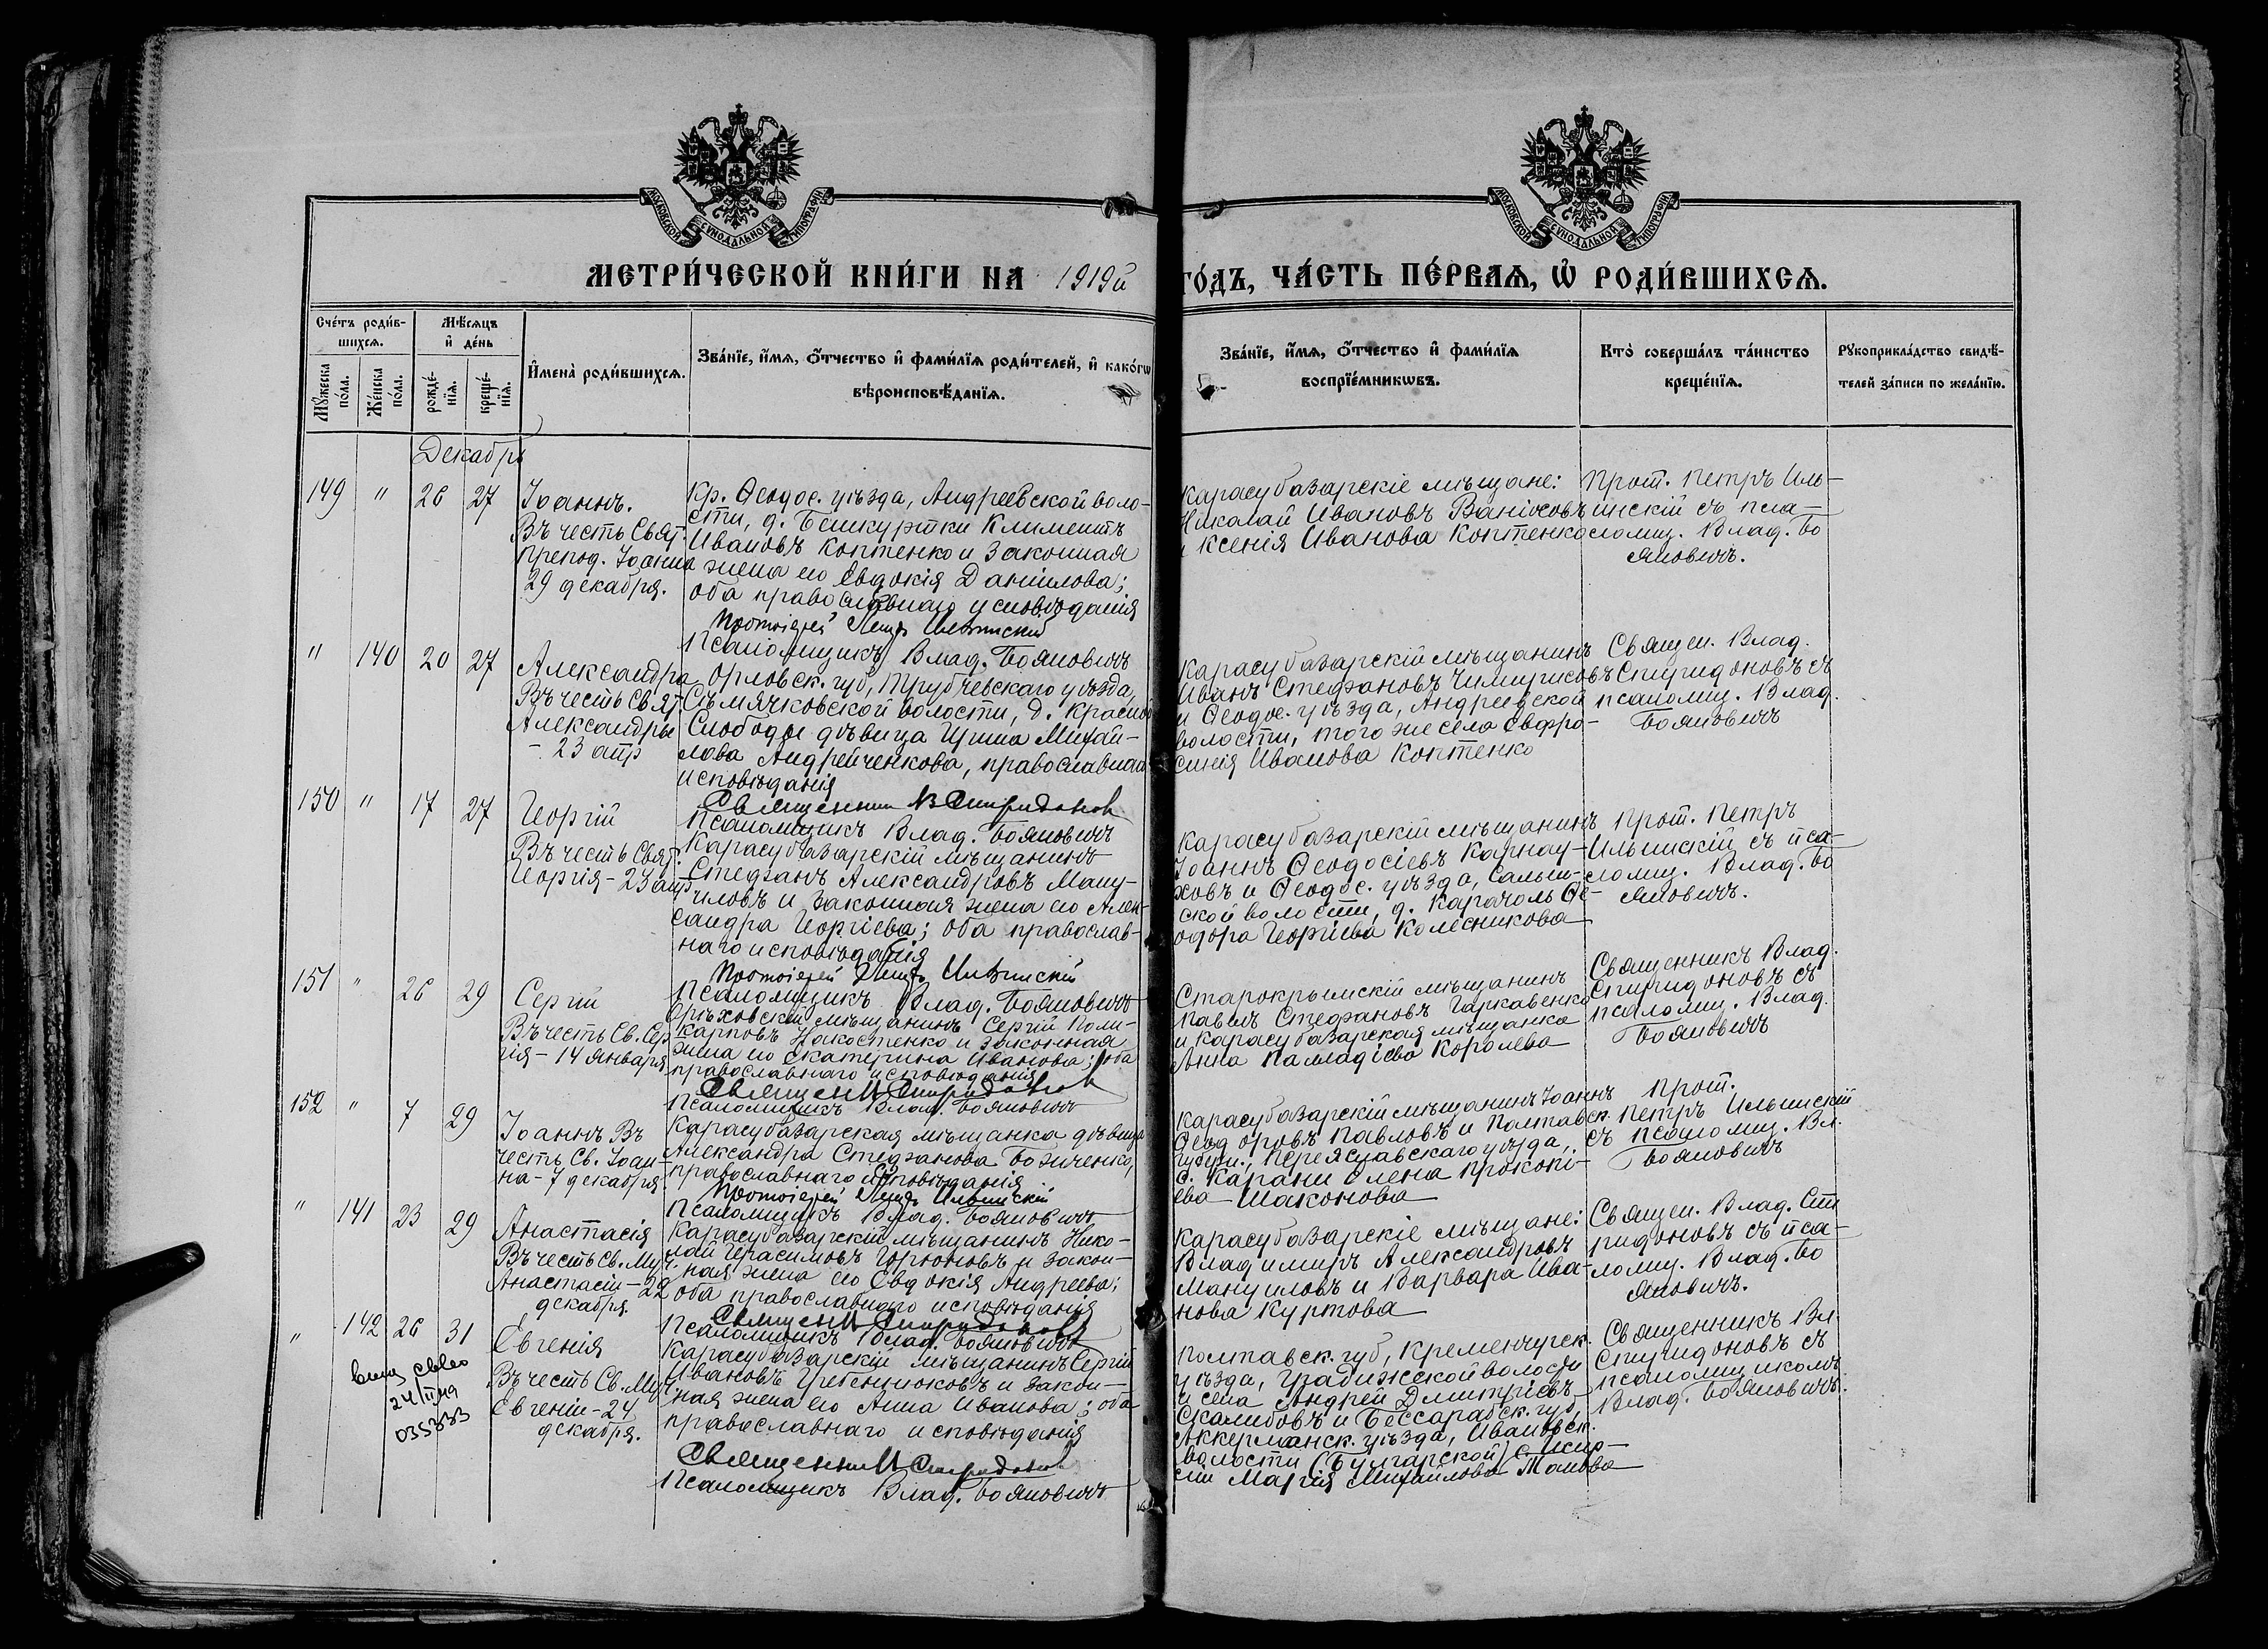 МОСКОВСКОЙ СУНОДАЛЬНОЙ ТИПОГРАФІИ
МОСКОВСКОЙ СУНОДАЛЬНОЙ ТИПОГРАФІИ
МЕТРИ́ЧЕСКОЙ КНИ́ГИ НА 1919й
ГО́ДЪ, ЧА́СТЬ ПЕ́РВАѦ, Ѡ҆ РОДИ́ВШИХСѦ.
Сче́тъ роди́в-
шихсѧ.
Мꙋ́жеска по́ла.
Же́нска по́ла.
Мѣ́сѧцъ
и҆ де́нь
рожде́-
нїѧ.
креще́-
нїѧ.
И҆мена̀ роди́вшихсѧ.
Зва́нїе, и҆́мѧ, ѻ҆́тчество и҆ фами́лїѧ роди́телей, и҆ како́гѡ
вѣроисповѣ́данїѧ.
Зва́нїе, и҆́мѧ, ѻ҆́тчество и҆ фами́лїѧ
воспрїе́мникѡвъ.
Кто̀ соверша́лъ та́инство
креще́нїѧ.
Рꙋкоприкла́дство свидѣ́-
телей за́писи по жела́нїю.
Декабрь
149 " 26 27
Іоаннъ.
Въ честь Свят.
препод. Іоанна
29 декабря.
Кр. Ѳеодос. уѣзда, Андреевской воло-
сти, д. Бешкуртки Климентъ
Ивановъ Коптенко и законная
жена его Евдокія Даніилова;
оба православнаго исповѣданія
Протоіерей Петръ Ильинскій
Псаломщикъ Влад. Бояновичъ
Карасубазарскіе мѣщане:
Николай Ивановъ Ваніосовъ
и Ксенія Иванова Коптенко
Прот. Петръ Иль-
инскій съ пса-
ломщ. Влад. Бо
яновичъ.
" 140 20 27
Александра
Въ честь Свят.
Александры
- 23 апр
Орловск. губ, Трубчевскаго уѣзда,
Сѣмячковской волости, д. Красной
Слободы дѣвица Ирина Михай-
лова Андрейченкова, православнаго
исповѣданія
Священник В Спиридонов
Псаломщикъ Влад. Бояновичъ
Карасубазарскій мѣщанинъ
Иванъ Стефановъ Чимирисовъ
и Ѳеодос. уѣзда, Андреевской
волости, того же села Евфро-
синія Иванова Коптенко
Священ. Влад.
Спиридоновъ съ
псаломщ. Влад.
Бояновичъ
150 " 17 27
Георгій
Въ честь Свят.
Георгія - 23 апр
Карасубазарскій мѣщанинъ
Стефанъ АлександровъМану-
иловъ и законная жена его Алек-
сандра Георгіева; оба православ-
наго исповѣданія
Протоіерей Петръ Ильинскій
Псаломщикъ Влад. Бояновичъ
Карасубазарскій мѣщанинъ
Іоаннъ Ѳеодосіевъ Карнау-
ховъ и Ѳеодос. уѣзда, Салын-
ской волости, д. Карачоль Ѳе-
одора Георгіева Колесникова
Прот. Петръ
Ильинскій съ пса-
ломщ. Влад. Бо
яновичъ.
151 " 26 29
Сергій
Въ честь Св. Сер
гія - 14 января
Орѣховскій мѣщанинъ Сергій Поли-
карповъ Накостенко и законная
жена его Екатерина Иванова; оба
православнаго исповѣданія
Священ Спиридонов
Псаломщикъ Влад. Бояновичъ
Старокрымскій мѣщанинъ
Павелъ Стефановъ Гаркавенко
и Карасубазарская мѣщанка
Анна Палладіева Королева
Священникъ Влад.
Спиридоновъ съ
псаломщ. Влад.
Бояновичъ
152 " 7 29
Іоаннъ Въ
честь Св. Іоан-
на - 7 декабря.
Карасубазарская мѣщанка дѣвица
Александра Стефанова Боженко,
православнаго исповѣданія
Протоіерей Петръ Ильинскій
Псаломщикъ Влад. Бояновичъ
Карасубазарскій мѣщанинъ Іоаннъ
Ѳеодоровъ Павловъ и Полтавск.
губерн., Переяславскаго уѣзда,
с. Карани Елена Прокопі-
ева Шаконова
Прот.
Петръ Ильинскій
съ псаломщ. Вл.
Бояновичъ
" 141 23 29
Анастасія
Въ честь Св. Муч.
Анастасіи - 22
декабря.
Карасубазарскій мѣщанинъ Нико-
лай Герасимовъ Горюновъ и закон-
ная жена его Евдокія Андреева;
оба православнаго исповѣданія
Священ Спиридонов
Псаломщикъ Влад. Бояновичъ
Карасубазарскіе мѣщане:
Владимиръ Александровъ
Мануиловъ и Варвара Ива-
нова Куртова
Священ. Влад. Спи
ридоновъ съ пса-
ломщ. Влад. Бо
яновичъ.
" 142 26 31
24/II
035333
Евгенія
Въ честь Св. Муч
Евгеніи - 24
декабря.
Карасубазарскій мѣщанинъ Сергій
Ивановъ Гребенниковъ и закон-
ная жена его Анна Иванова; оба
православнаго исповѣданія
Священник Спиридонов
Псаломщикъ Влад. Бояновичъ
Полтавск. губ, Кременчугск.
уѣзда, Градижской волости
и села Андрей Дмитріевъ
Скалибовъ и Бессарабск. губ,
Аккерманск. уѣзда, Ивановск.
волости (Булгарской)
Марія Михайлова Танова
Священникъ Вл.
Спиридоновъ съ
псаломщикомъ
Влад. Бояновичъ.